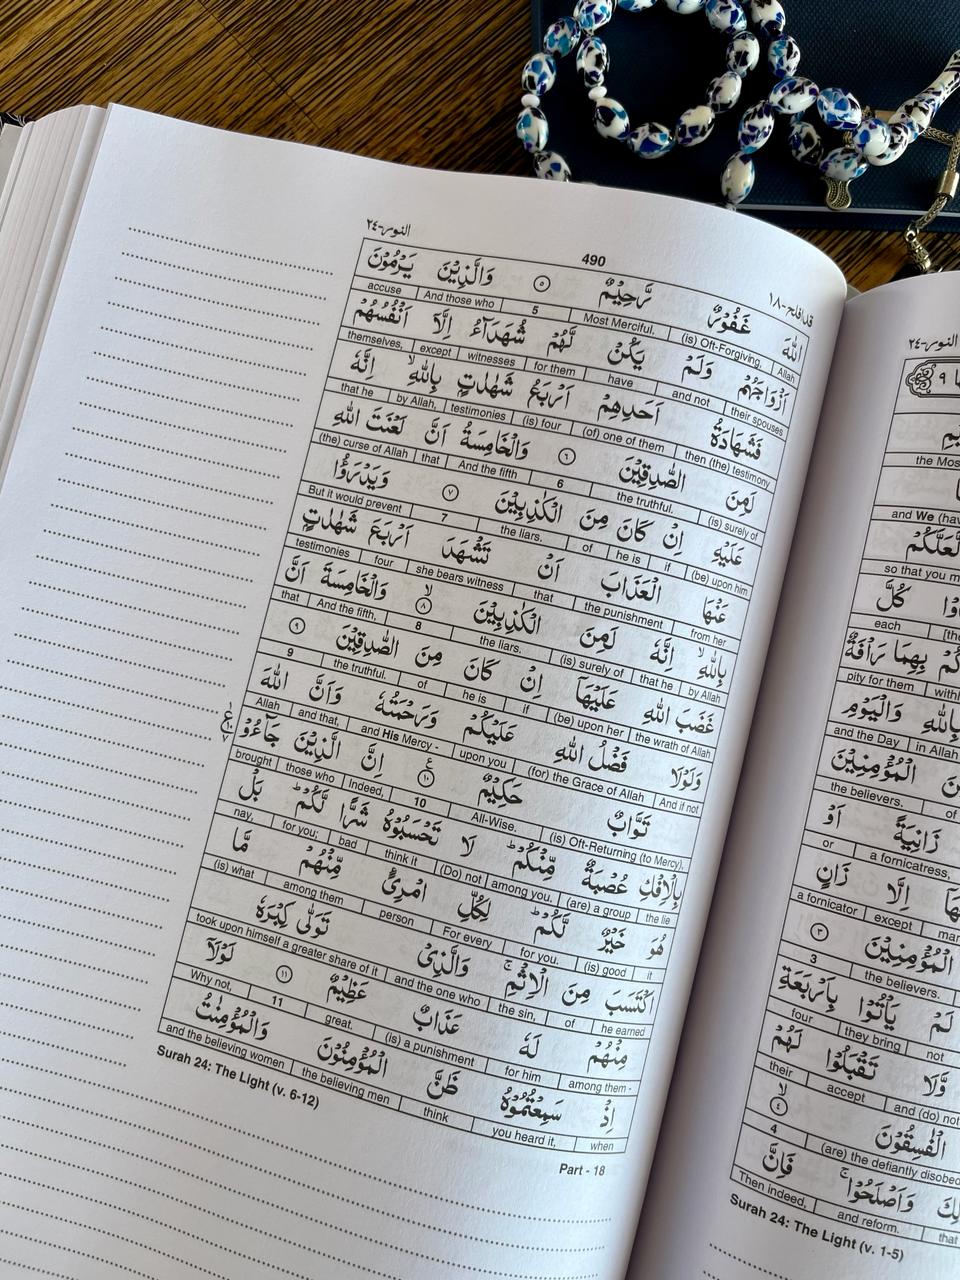 النور-٢٤
490
قد افلح-١٨
اللهَ غَفُوْرٌ رَّحِيْمٌ ٥ وَالَّذِيْنَ يَرْمُوْنَ
Allah (is) Oft-Forgiving, Most Merciful. 5 And those who accuse
اَزْوَاجَهُمْ وَلَمْ يَكُنْ لَّهُمْ شُهَدَآءُ اِلَّآ اَنْفُسُهُمْ
their spouses and not have for them witnesses except themselves,
فَشَهَادَةُ اَحَدِهِمْ اَرْبَعُ شَهٰدٰتٍ بِاللهِ ۙ اِنَّهٗ
then (the) testimony (of) one of them (is) four testimonies by Allah, that he
لَمِنَ الصّٰدِقِيْنَ ٦ وَالْخَامِسَةُ اَنَّ لَعْنَتَ اللهِ
(is) surely of the truthful. 6 And the fifth that (the) curse of Allah
عَلَيْهِ اِنْ كَانَ مِنَ الْكٰذِبِيْنَ ٧ وَيَدْرَؤُا
(be) upon him if he is of the liars. 7 But it would prevent
عَنْهَا الْعَذَابَ اَنْ تَشْهَدَ اَرْبَعَ شَهٰدٰتٍ
from her the punishment that she bears witness four testimonies
بِاللهِ ۙ اِنَّهٗ لَمِنَ الْكٰذِبِيْنَ ۙ ٨ وَالْخَامِسَةَ اَنَّ
by Allah that he (is) surely of the liars. 8 And the fifth, that
غَضَبَ اللهِ عَلَيْهَآ اِنْ كَانَ مِنَ الصّٰدِقِيْنَ ٩
the wrath of Allah (be) upon her if he is of the truthful. 9
وَلَوْلَا فَضْلُ اللهِ عَلَيْكُمْ وَرَحْمَتُهٗ وَاَنَّ اللهَ
And if not (for) the Grace of Allah upon you and His Mercy - and that, Allah
تَوَّابٌ حَكِيْمٌ ١٠ اِنَّ الَّذِيْنَ جَآءُوْ
(is) Oft-Returning (to Mercy), All-Wise. 10 Indeed, those who brought
بِالْاِفْكِ عُصْبَةٌ مِّنْكُمْ ؕ لَا تَحْسَبُوْهُ شَرًّا لَّكُمْ ؕ بَلْ
the lie (are) a group among you. (Do) not think it bad for you; nay,
هُوَ خَيْرٌ لَّكُمْ ؕ لِكُلِّ امْرِئٍ مِّنْهُمْ مَّا
it (is) good for you. For every person among them (is) what
اكْتَسَبَ مِنَ الْاِثْمِ ۚ وَالَّذِىْ تَوَلّٰى كِبْرَهٗ
he earned of the sin, and the one who took upon himself a greater share of it
مِنْهُمْ لَهٗ عَذَابٌ عَظِيْمٌ ١١ لَوْلَآ
among them - for him (is) a punishment great. 11 Why not,
اِذْ سَمِعْتُمُوْهُ ظَنَّ الْمُؤْمِنُوْنَ وَالْمُؤْمِنٰتُ
when you heard it, think the believing men and the believing women
Surah 24: The Light (v. 6-12)
Part - 18
النور-٢٤
٩
the Mos
and We (hav
لَعَلَّكُمْ
so that you m
كُلَّ
each
بِهِمَا رَاْفَةٌ
pity for them with
بِاللهِ وَالْيَوْمِ
in Allah and the Day
الْمُؤْمِنِيْنَ
the believers. of
زَانِيَةً اَوْ
a fornicatress, or
اِلَّا زَانٍ
except a fornicator
الْمُؤْمِنِيْنَ ٣
the believers. 3
لَمْ يَاْتُوْا بِاَرْبَعَةِ
not they bring four
وَّلَا تَقْبَلُوْا لَهُمْ
and (do) not accept their
الْفٰسِقُوْنَ ۙ ٤
(are) the defiantly disobed 4
وَاَصْلَحُوْا ۚ فَاِنَّ
that and reform. Then indeed,
Surah 24: The Light (v. 1-5)